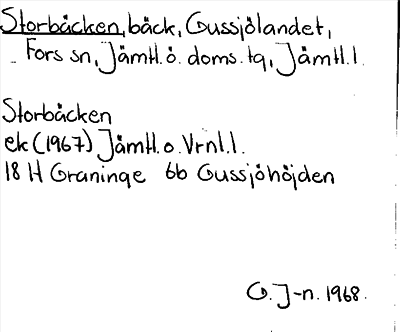 Storbäcken, bäck, Gussjölandet,
Fors sn, Jämtl. ö. doms. tq, Jämtl. l.
Storbäcken
ek (1967) Jämtl. o. Vrnl. l.
18 H Graninge 6b Gussjöhöjden
G. J-n. 1968.